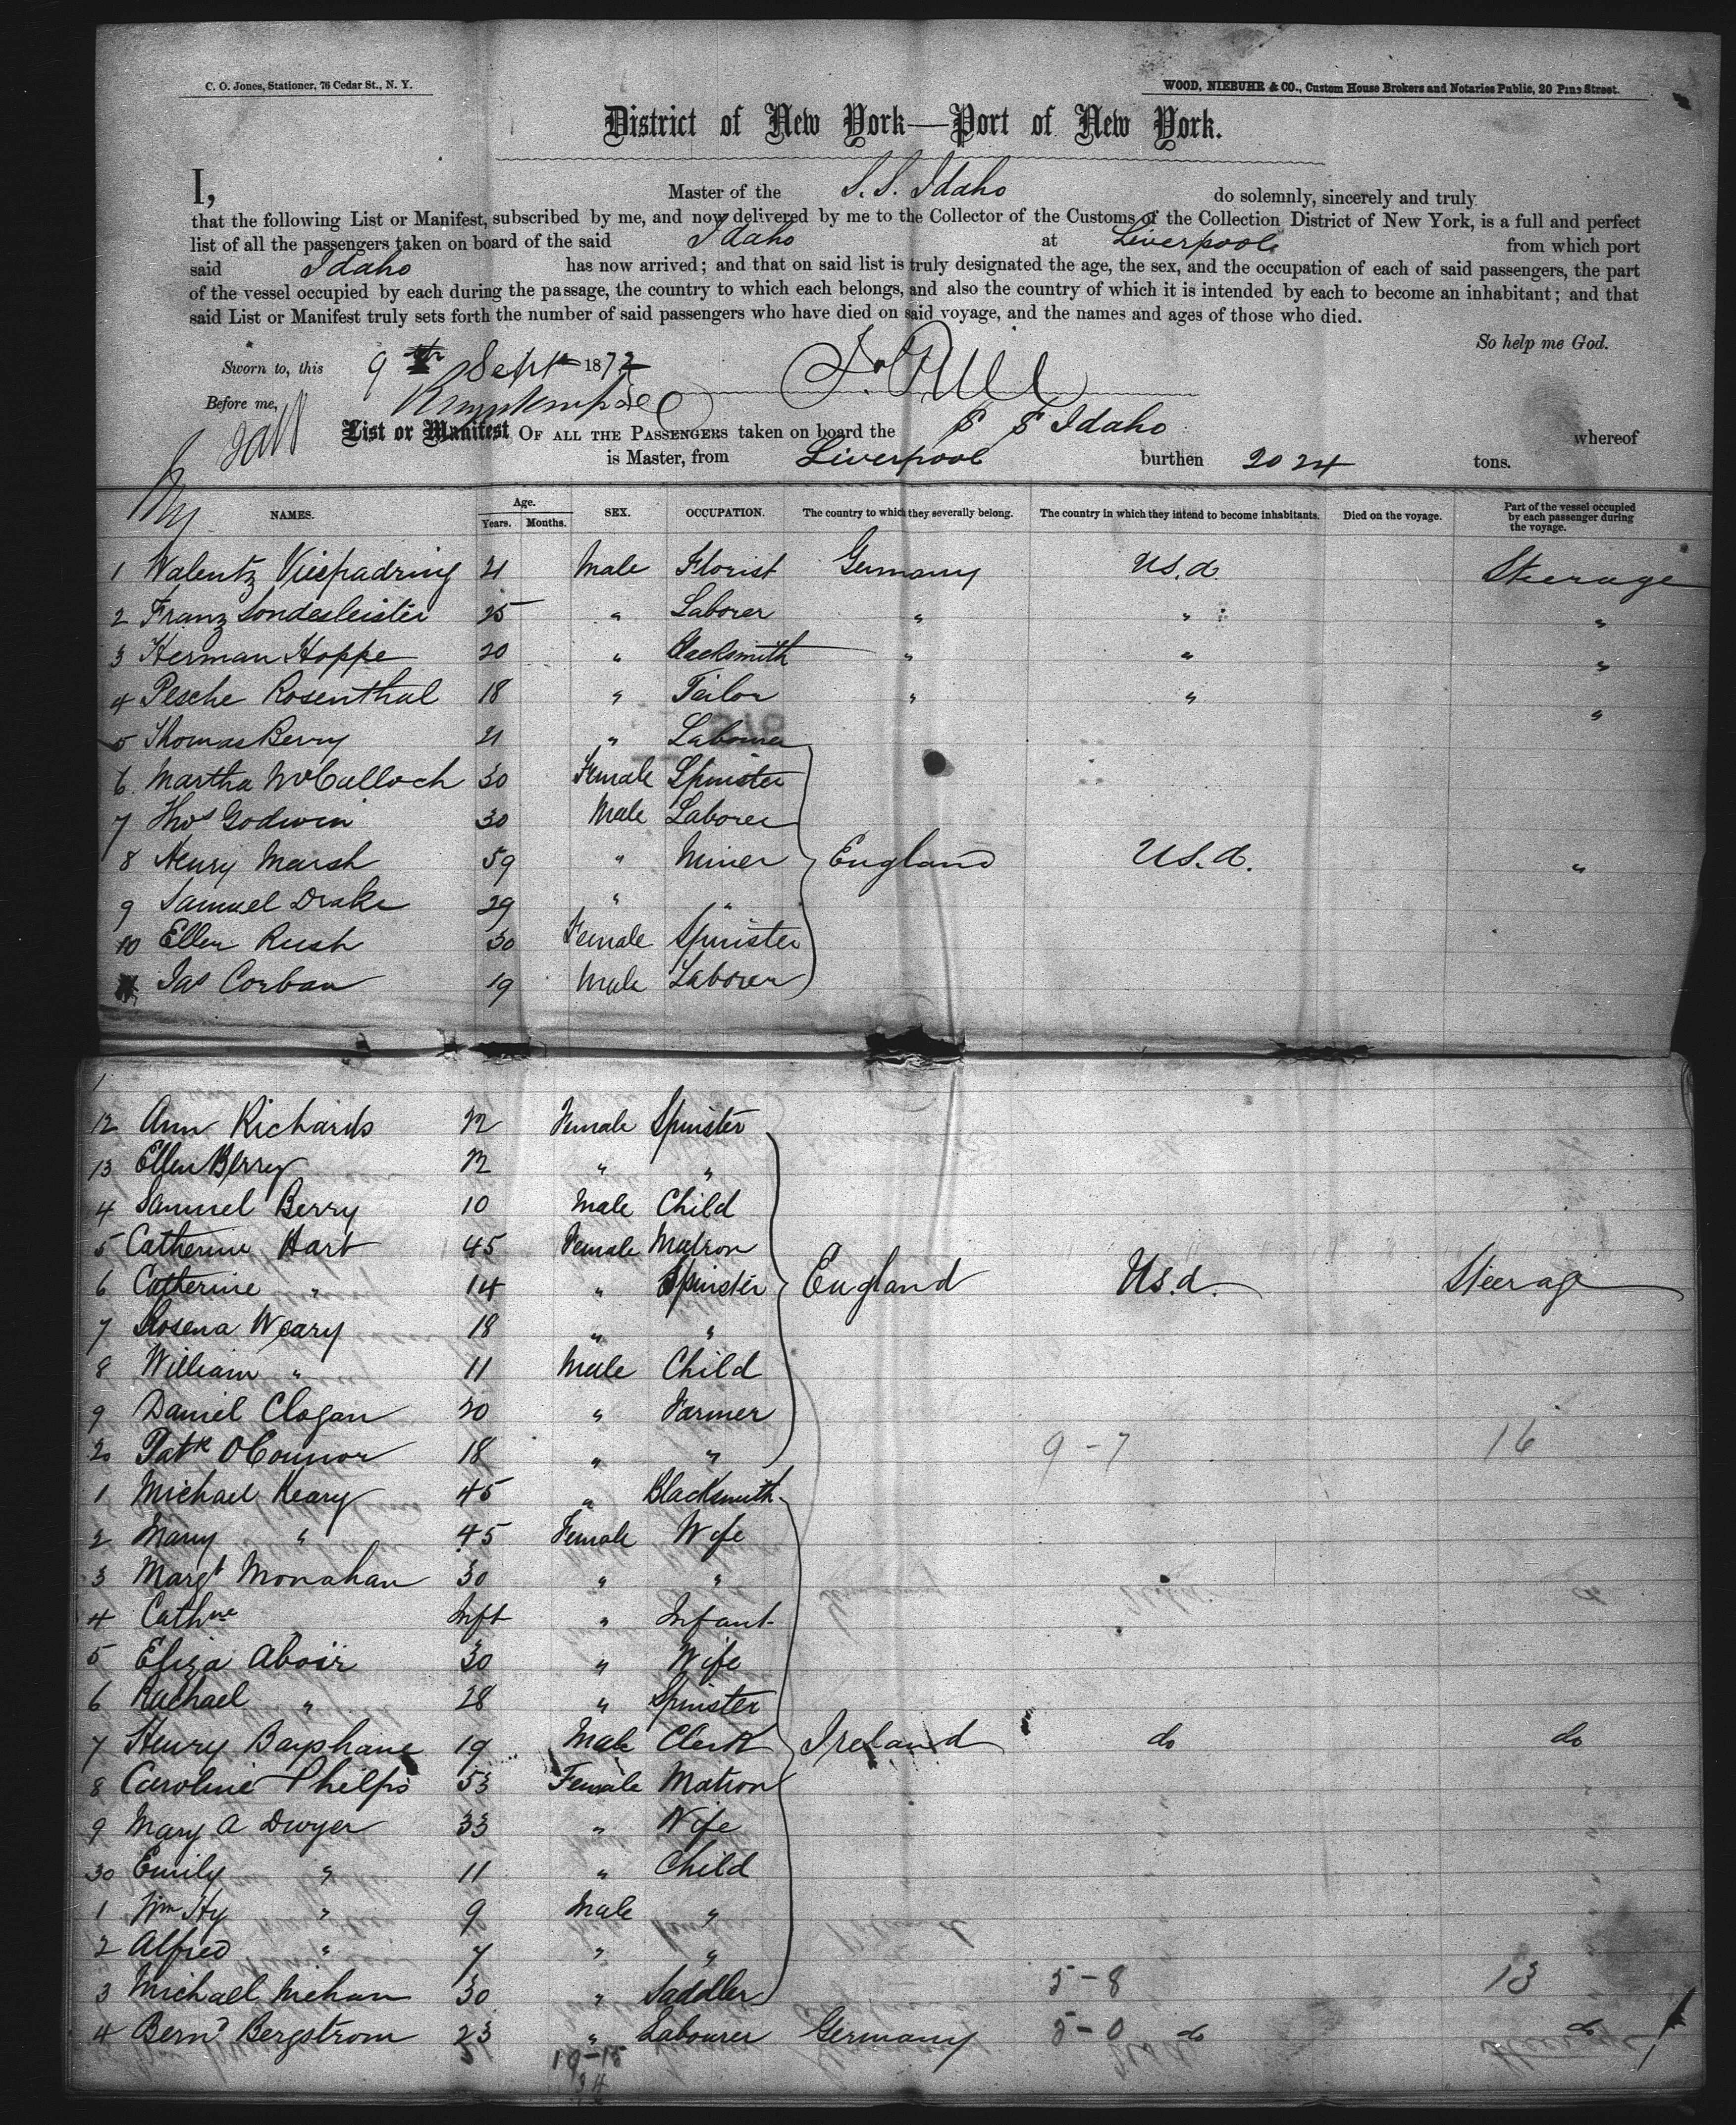 C. O. Jones, Stationer, 76 Cedar St., N. Y.
WOOD, NIEBUHR & CO., Custom House Brokers and Notaries Public, 20 Pine Street.
District of New York—Port of New York.
I, Master of the S. S. Idaho do solemnly, sincerely and truly
that the following List or Manifest, subscribed by me, and now delivered by me to the Collector of the Customs of the Collection District of New York, is a full and perfect
list of all the passengers taken on board of the said Idaho at Liverpool from which port
said Idaho has now arrived; and that on said list is truly designated the age, the sex, and the occupation of each of said passengers, the part
of the vessel occupied by each during the passage, the country to which each belongs, and also the country of which it is intended by each to become an inhabitant; and that
said List or Manifest truly sets forth the number of said passengers who have died on said voyage, and the names and ages of those who died.
So help me God.
Sworn to, this 9th Sept 1872
Before me,
List or Manifest OF ALL THE PASSENGERS taken on board the S S Idaho whereof
is Master, from Liverpool burthen 2024 tons.
NAMES. Age. Years. Months. SEX. OCCUPATION. The country to which they severally belong. The country in which they intend to become inhabitants. Died on the voyage. Part of the vessel occupied by each passenger during the voyage.
1 Walentz 21 Male Florist Germany U.S.A. Steerage
2 Franz 25 " Laborer " " "
3 Herman Hoppe 20 " Blacksmith " " "
4 Pesche Rosenthal 18 " Tailor " " "
5 Thomas Berry 21 " Labourer
6 Martha McCulloch 30 Female Spinster
7 Thos Godwin 30 Male Laborer
8 Henry Marsh 59 " Miner England U.S.A. "
9 Samuel Drake 29 " "
10 Ellen Rush 30 Female Spinster
11 Jas Corban 19 Male Laborer
12 Ann Richards 22 Female Spinster
13 Ellen Berry 22 " "
4 Samuel Berry 10 Male Child
5 Catherine Hart 45 Female Matron
6 Catherine " 14 " Spinster England U.S.A. Steerage
7 Rosena Weary 18 " "
8 William " 11 Male Child
9 Daniel Clogan 20 " Farmer
20 Patk O'Connor 18 " " 9-7 16
1 Michael Keary 45 " Blacksmith
2 Mary " 45 Female Wife
3 Margt Monahan 30 " "
4 Cathne Inft " Infant
5 Eliza Aboir 30 " Wife
6 Rachael " 28 " Spinster
7 Henry 19 Male Clerk Ireland do do
8 Caroline Phelps 53 Female Matron
9 Mary A Dwyer 33 " Wife
30 Emily " 11 " Child
1 Wm Hy " 9 Male "
2 Alfred " 7 " "
3 Michael Mehan 30 " Saddler 5-8 13
4 Bernd Bergstrom 23 " Labourer Germany 5-0 do do
19-15
34